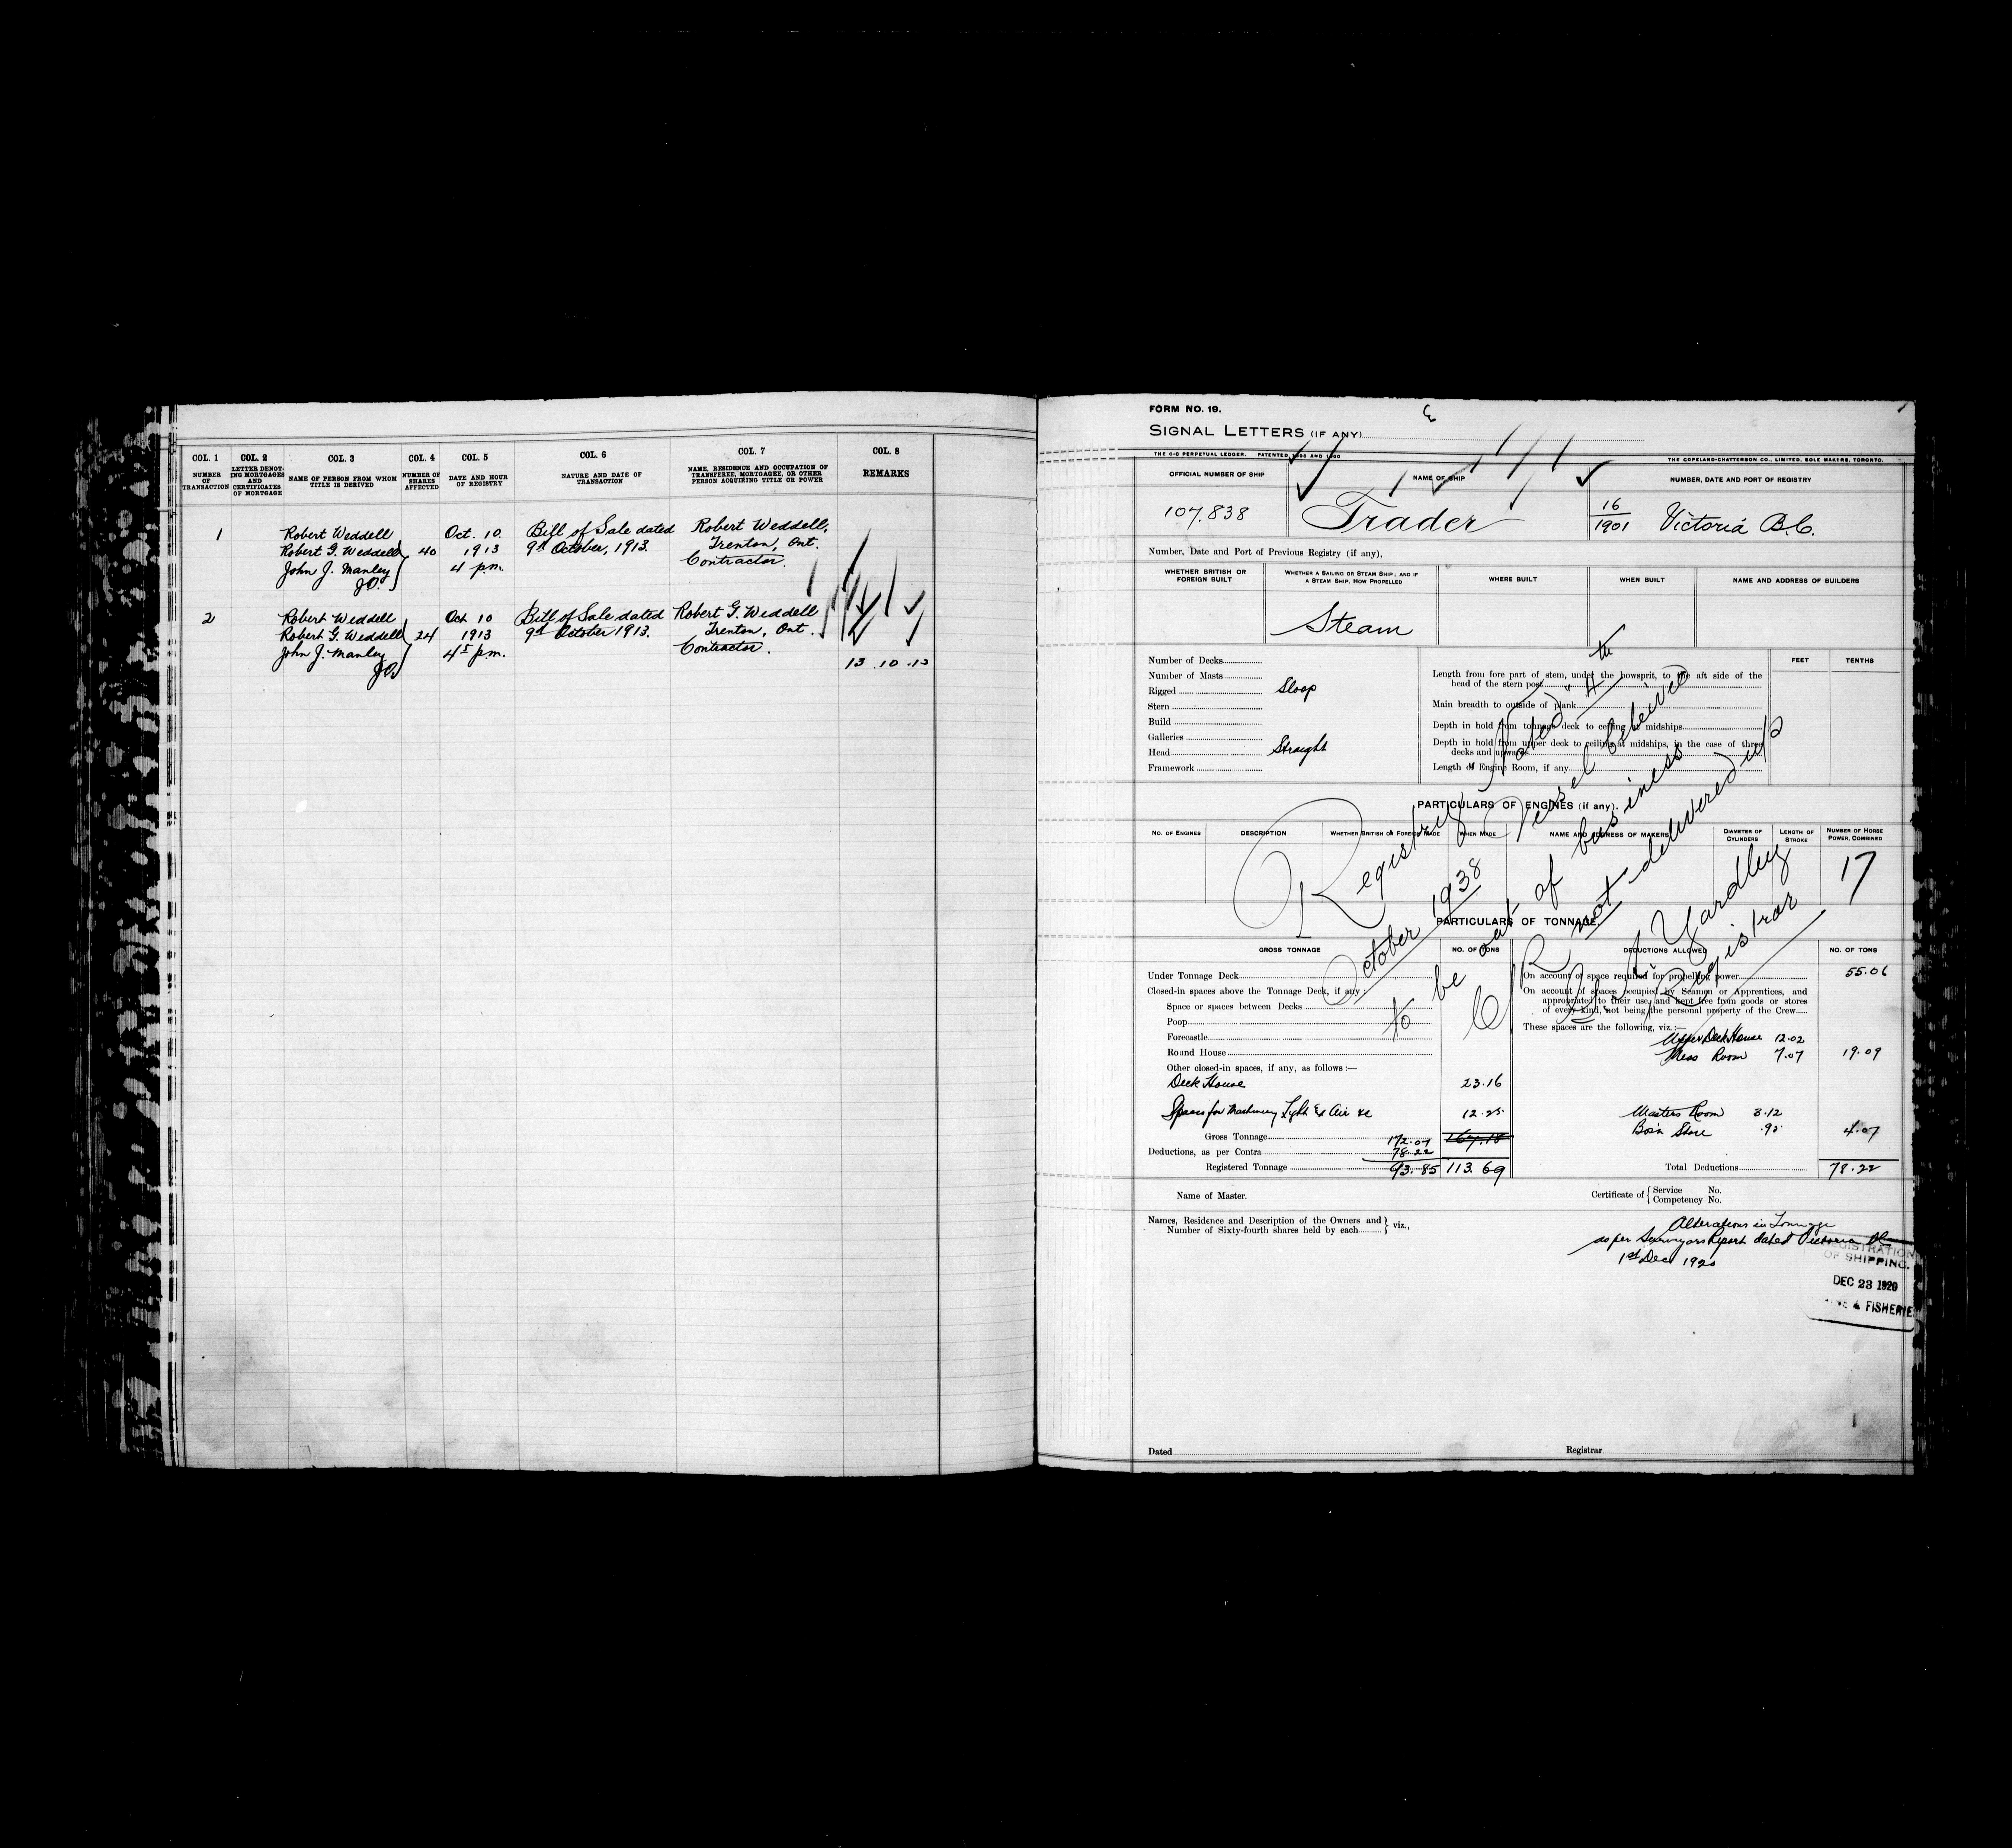 COL. 1 COL. 2 COL. 3 COL. 4 COL. 5 COL. 6 COL. 7 COL. 8
NUMBER OF TRANSACTION
LETTER DENOTING MORTGAGES AND CERTIFICATES OF MORTGAGE
NAME OF PERSON FROM WHOM TITLE IS DERIVED
NUMBER OF SHARES AFFECTED
DATE AND HOUR OF REGISTRY
NATURE AND DATE OF TRANSACTION
NAME, RESIDENCE AND OCCUPATION OF TRANSFEREE, MORTGAGEE, OR OTHER PERSON ACQUIRING TITLE OR POWER
REMARKS
1 Robert Weddell Oct. 10. Bill of Sale dated Robert Weddell,
Robert G. Weddell 40 1913 9th October, 1913. Trenton, Ont.
John J. Manley 4 p.m. Contractor.
JO.
2 Robert Weddell Oct 10 Bill of Sale dated Robert G. Weddell
Robert G. Weddell 24 1913 9th October 1913. Trenton, Ont.
John J. Manley p.m. Contractor.
JO.
13.10.13
FORM NO. 19.
SIGNAL LETTERS (IF ANY)
THE C-C PERPETUAL LEDGER. PATENTED 1896 AND 1900 THE COPELAND-CHATTERSON CO., LIMITED, SOLE MAKERS, TORONTO.
OFFICIAL NUMBER OF SHIP NAME OF SHIP NUMBER, DATE AND PORT OF REGISTRY
107.838 Trader 16/1901 Victoria B.C.
Number, Date and Port of Previous Registry (if any),
WHETHER BRITISH OR FOREIGN BUILT
WHETHER A SAILING OR STEAM SHIP; AND IF A STEAM SHIP, HOW PROPELLED
WHERE BUILT WHEN BUILT NAME AND ADDRESS OF BUILDERS
Steam
Number of Decks
Number of Masts
Rigged Sloop
Stern
Build
Galleries
Head Straight
Framework
FEET TENTHS
Length from fore part of stem, under the bowsprit, to the aft side of the
head of the stern post
Main breadth to outside of plank
Depth in hold from tonnage deck to ceiling at midships
Depth in hold from upper deck to ceiling at midships, in the case of three
decks and upwards
Length of Engine Room, if any
PARTICULARS OF ENGINES (if any).
NO. OF ENGINES DESCRIPTION WHETHER BRITISH OR FOREIGN MADE WHEN MADE NAME AND ADDRESS OF MAKERS DIAMETER OF CYLINDERS LENGTH OF STROKE NUMBER OF HORSE POWER, COMBINED
17
Registry closed 4th
October 1938 Vessel believed
to be out of business
C/R not delivered up
Yardley
Registrar
PARTICULARS OF TONNAGE
GROSS TONNAGE NO. OF TONS DEDUCTIONS ALLOWED NO. OF TONS
Under Tonnage Deck
Closed-in spaces above the Tonnage Deck, if any:
Space or spaces between Decks
Poop
Forecastle
Round House
Other closed-in spaces, if any, as follows:—
Deck House 23.16
Spaces for Machinery Light & Air &c 12.25
Gross Tonnage 172.07 167.18
Deductions, as per Contra 78.22
Registered Tonnage 93.85 113.69
On account of space required for propelling power 55.06
On account of spaces occupied by Seamen or Apprentices, and
appropriated to their use, and kept free from goods or stores
of every kind, not being the personal property of the Crew
These spaces are the following, viz.:—
Upper Deck House 12.02
Mess Room 7.07 19.09
Masters Room 3.12
Bosn Store .95 4.07
Total Deductions 78.22
Name of Master.
Certificate of { Service No.
Competency No.
Names, Residence and Description of the Owners and
Number of Sixty-fourth shares held by each } viz.,
Alterations in Tonnage
as per Surveyors Report dated Victoria BC
1st Dec 1920
REGISTRATION
OF SHIPPING.
DEC 23 1920
& FISHERIE
Dated Registrar